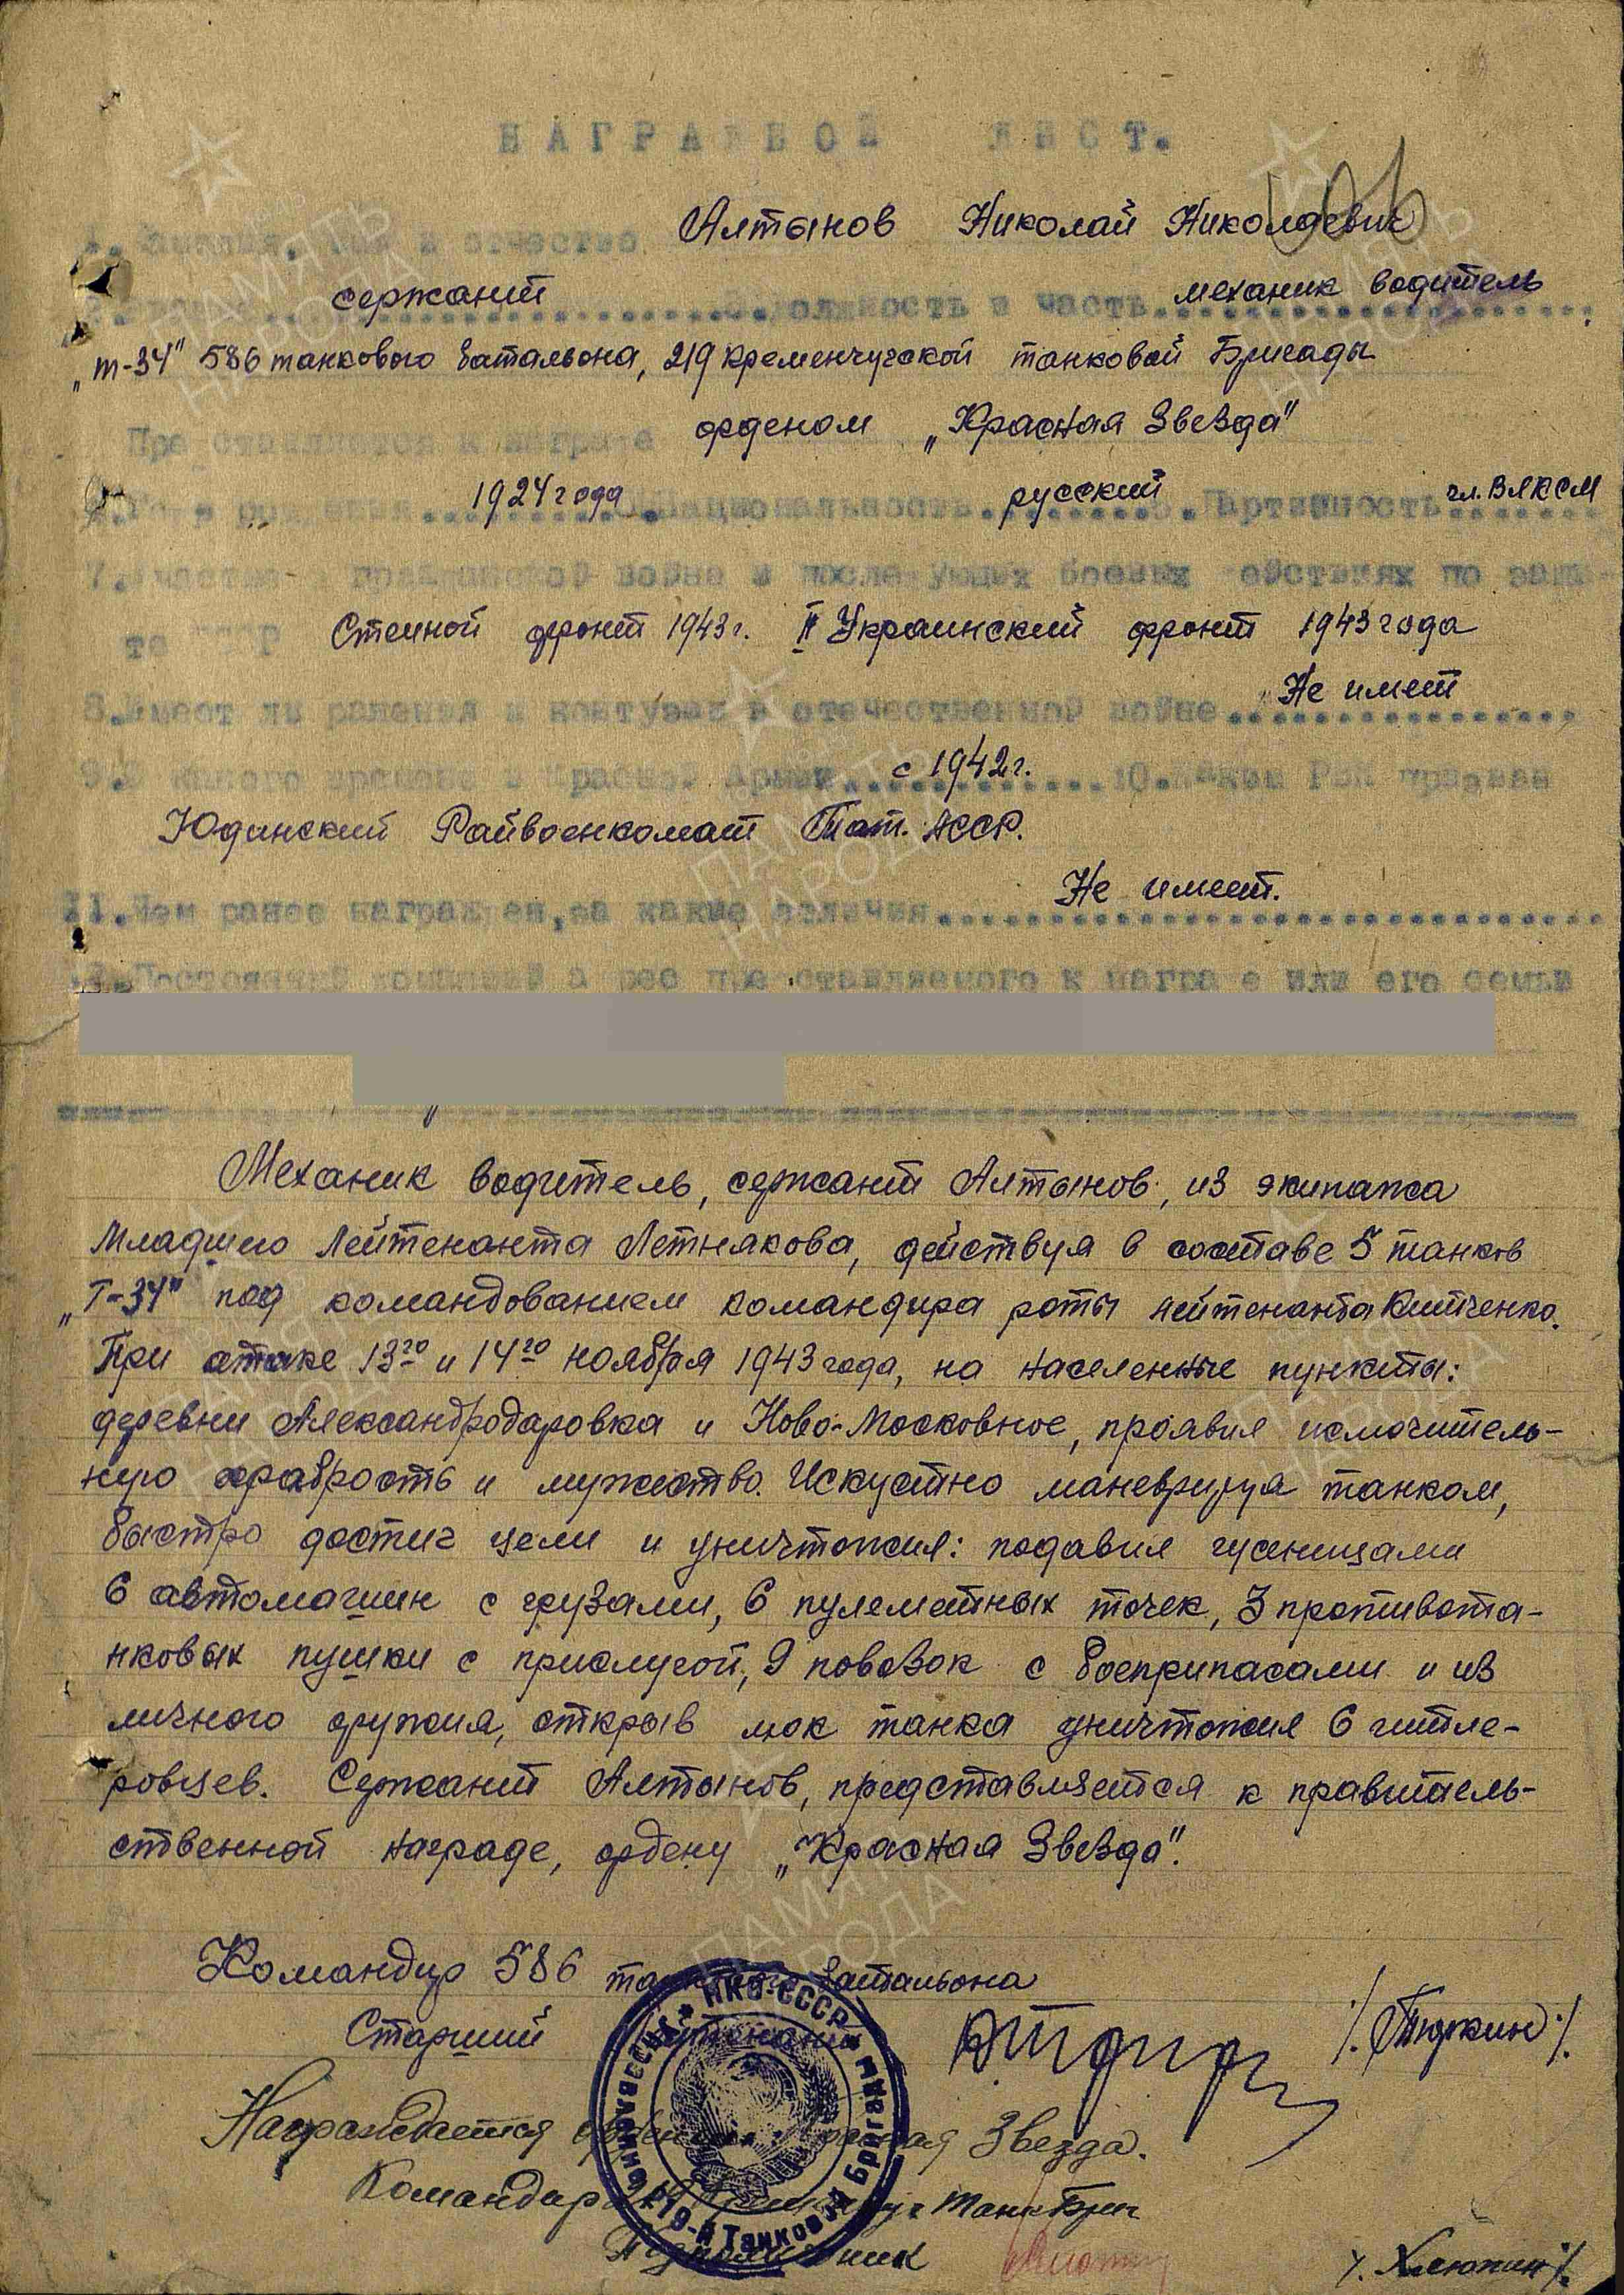 НАГРАДНОЙ ЛИСТ.
1. Фамилия, имя и отчество Алтынов Николай Николаевич
сержант должность и часть механик водитель
„т-34" 586 танкового батальона, 219 Кременчугской танковой Бригады
Представляется к награде орденом „Красная Звезда"
Год рождения 1924 года Национальность русский Партийность чл. ВЛКСМ
7. Участие в гражданской войне и последующих боевых действиях по защи-
те СССР Степной фронт 1943 г. II Украинский фронт 1943 года
8. Имеет ли ранения и контузии в отечественной войне Не имеет
9. С какого времени в Красной Армии с 1942 г. 10. Каким РВК призван
Юдинский Райвоенкомат Тат. АССР.
11. Чем ранее награжден, за какие отличия Не имеет.
12. Постоянный домашний адрес представляемого к награде или его семьи
Механик водитель, сержант Алтынов, из экипажа
младшего лейтенанта Летнякова, действуя в составе 5 танков
„Т-34" под командованием командира роты лейтенанта Китченко.
При атаке 13го и 14го ноября 1943 года, на населенные пункты:
деревни Александродаровка и Ново-Московное, проявил исключитель-
ную храбрость и мужество. Искустно маневрируя танком,
быстро достиг цели и уничтожил: подавил гусеницами
6 автомашин с грузами, 6 пулеметных точек, 3 противота-
нковых пушки с прислугой, 9 повозок с боеприпасами и из
личного оружия, открыв люк танка уничтожил 6 гитле-
ровцев. Сержант Алтынов, представляется к правитель-
ственной награде, ордену „Красная Звезда".
Командир 586 танкового батальона
Старший лейтенант /. Тюркин ./.
НКО-СССР
219-я Танковая Бригада
Награждается орденом Красная Звезда.
Командир Танк Бриг
Подполковник /. Хлюпин ./.
ПАМЯТЬ НАРОДА